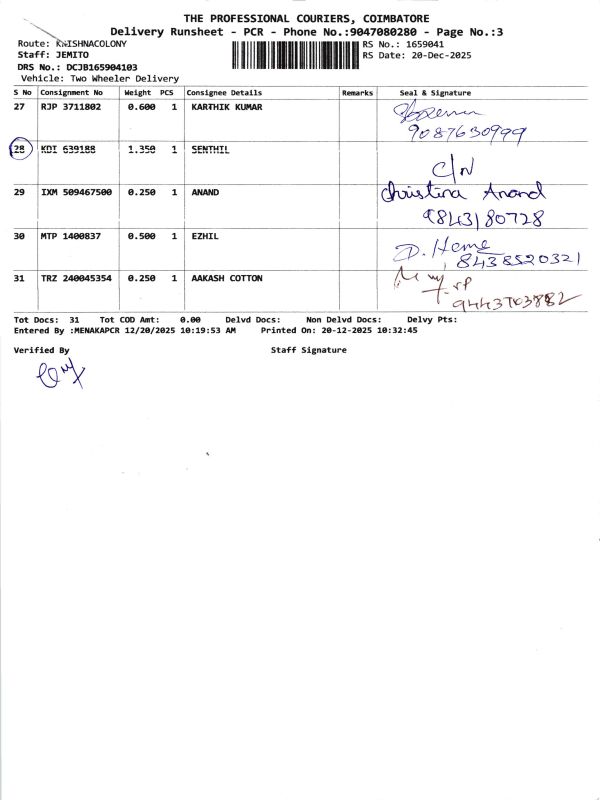 THE PROFESSIONAL COURIERS, COIMBATORE
Delivery Runsheet - PCR - Phone No.:9047080280 - Page No.:3
Route: KRISHNACOLONY
RS No.: 1659041
Staff: JEMITO
RS Date: 20-Dec-2025
DRS No.: DCJB165904103
Vehicle: Two Wheeler Delivery
S No Consignment No Weight PCS Consignee Details Remarks Seal & Signature
27 RJP 3711802 0.600 1 KARTHIK KUMAR
9087630999
28 KDI 639188 1.350 1 SENTHIL
C/N
29 IXM 509467500 0.250 1 ANAND Christina Anand
9843180728
30 MTP 1400837 0.500 1 EZHIL D. Hema
8438520321
31 TRZ 240045354 0.250 1 AAKASH COTTON
9443703882
Tot Docs: 31 Tot COD Amt: 0.00 Delvd Docs: Non Delvd Docs: Delvy Pts:
Entered By :MENAKAPCR 12/20/2025 10:19:53 AM Printed On: 20-12-2025 10:32:45
Verified By Staff Signature